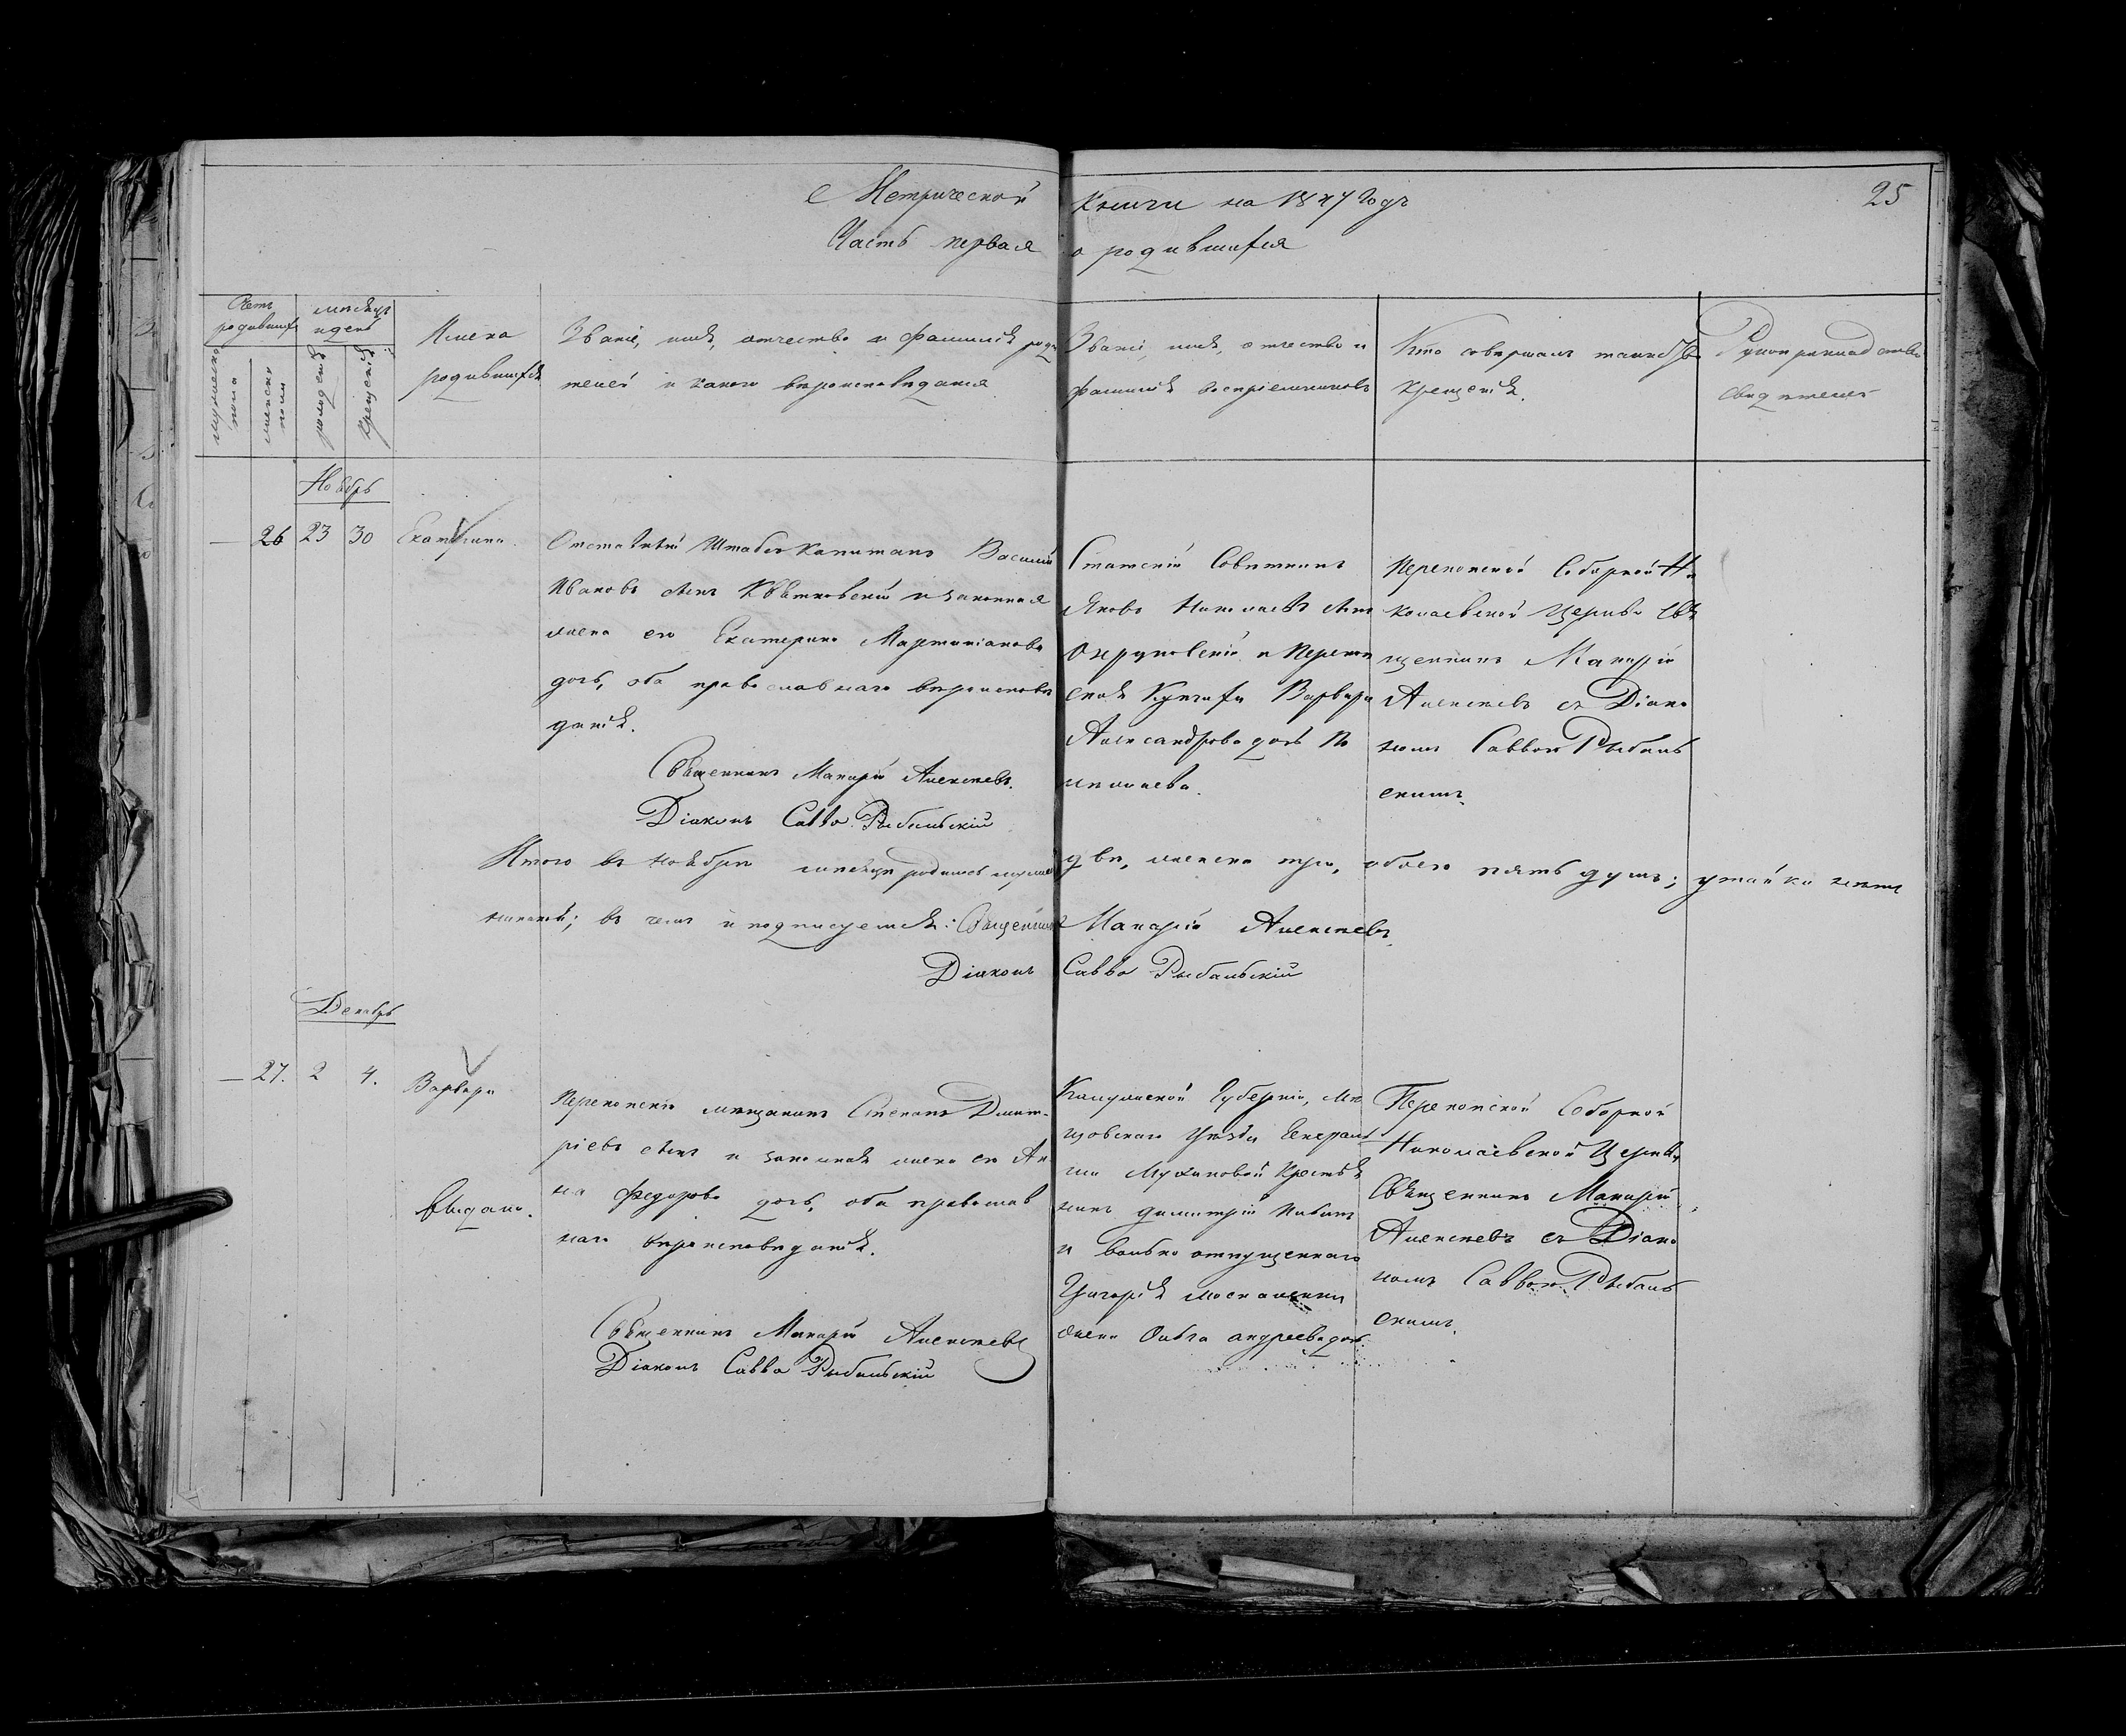 Метрической книги на 1847 годъ
25
Часть первая о родившихся
Счетъ родившихся
мужеска пола
женска пола
месяцъ и день
рожденія
крещенія
Имена родившихся
Званіе, имя, отчество и фамилія роди
телей и какого вероисповеданія
Званіе, имя, отчество и
фамилія воспріемниковъ
Кто совершалъ таинство
крещенія.
Рукоприкладство
свидетелей
Ноябрь
— 26 23 30 Екатерина.
Отставный Штабсъ Капитанъ Василій
Ивановъ сынъ Квятковскій и законная
жена его Екатерина Мартиніанова
дочь, оба православнаго вероиспове
данія.
Священникъ Макарій Алексеевъ.
Діаконъ Савва Рыбальскій
Статскій Советникъ
Яковъ Николаевъ сынъ
и Перекоп
ская Купчиха Варвара
Александрова дочь
Перекопской Соборной Ни
колаевской церкви Свя
щенникъ Макарій
Алексеевъ съ Діако
номъ Саввою Рыбаль
скимъ.
Итого въ ноябре месяце родилось мужеска два, женска три, обоего пять душъ; утайки нетъ
никакой; въ чемъ и подписуемся: Священникъ Макарій Алексеевъ.
Діаконъ Савва Рыбальскій
Декабрь
— 27. 2 4. Варвара
выдано.
Перекопскій мещанинъ Степанъ Димит-
ріевъ сынъ и законная жена его Ан
на Федорова дочь, оба православ
наго вероисповеданія.
Священникъ Макарій Алексеевъ
Діаконъ Савва Рыбальскій
Калужской Губерніи, Ме
щовскаго уезда Генераль
ши Мухановой крестья
нинъ Димитрій
и вольно отпущеннаго
Григорія
жена Ольга Андреева дочь.
Перекопской Соборной
Николаевской Церкви
Священникъ Макарій
Алексеевъ съ Діако
номъ Саввою Рыбаль
скимъ.